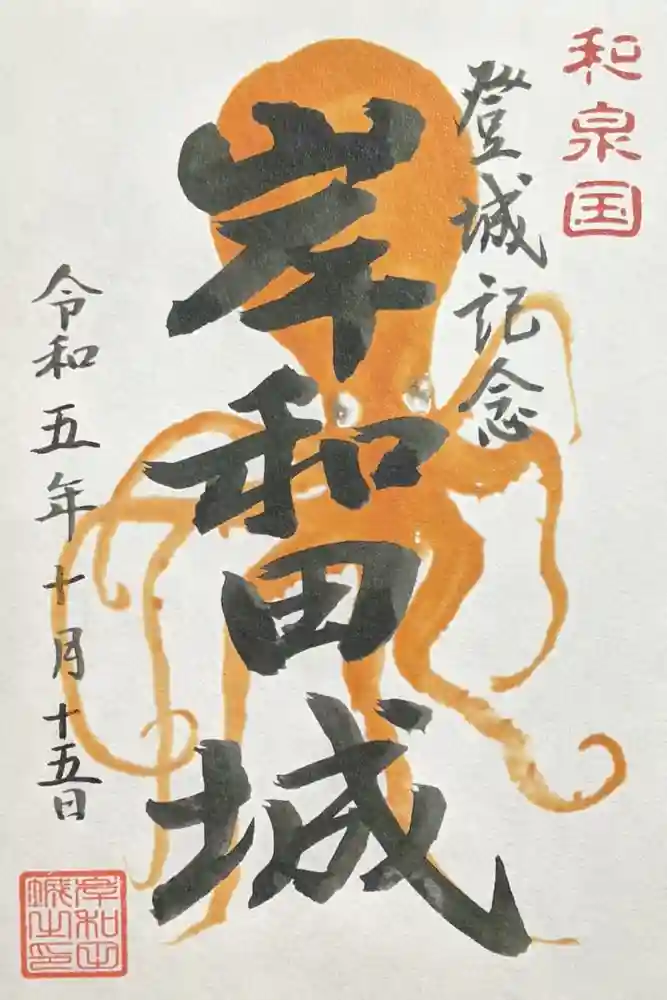 和泉国
登城記念
岸和田城
令和五年十月十五日
岸和田城之印